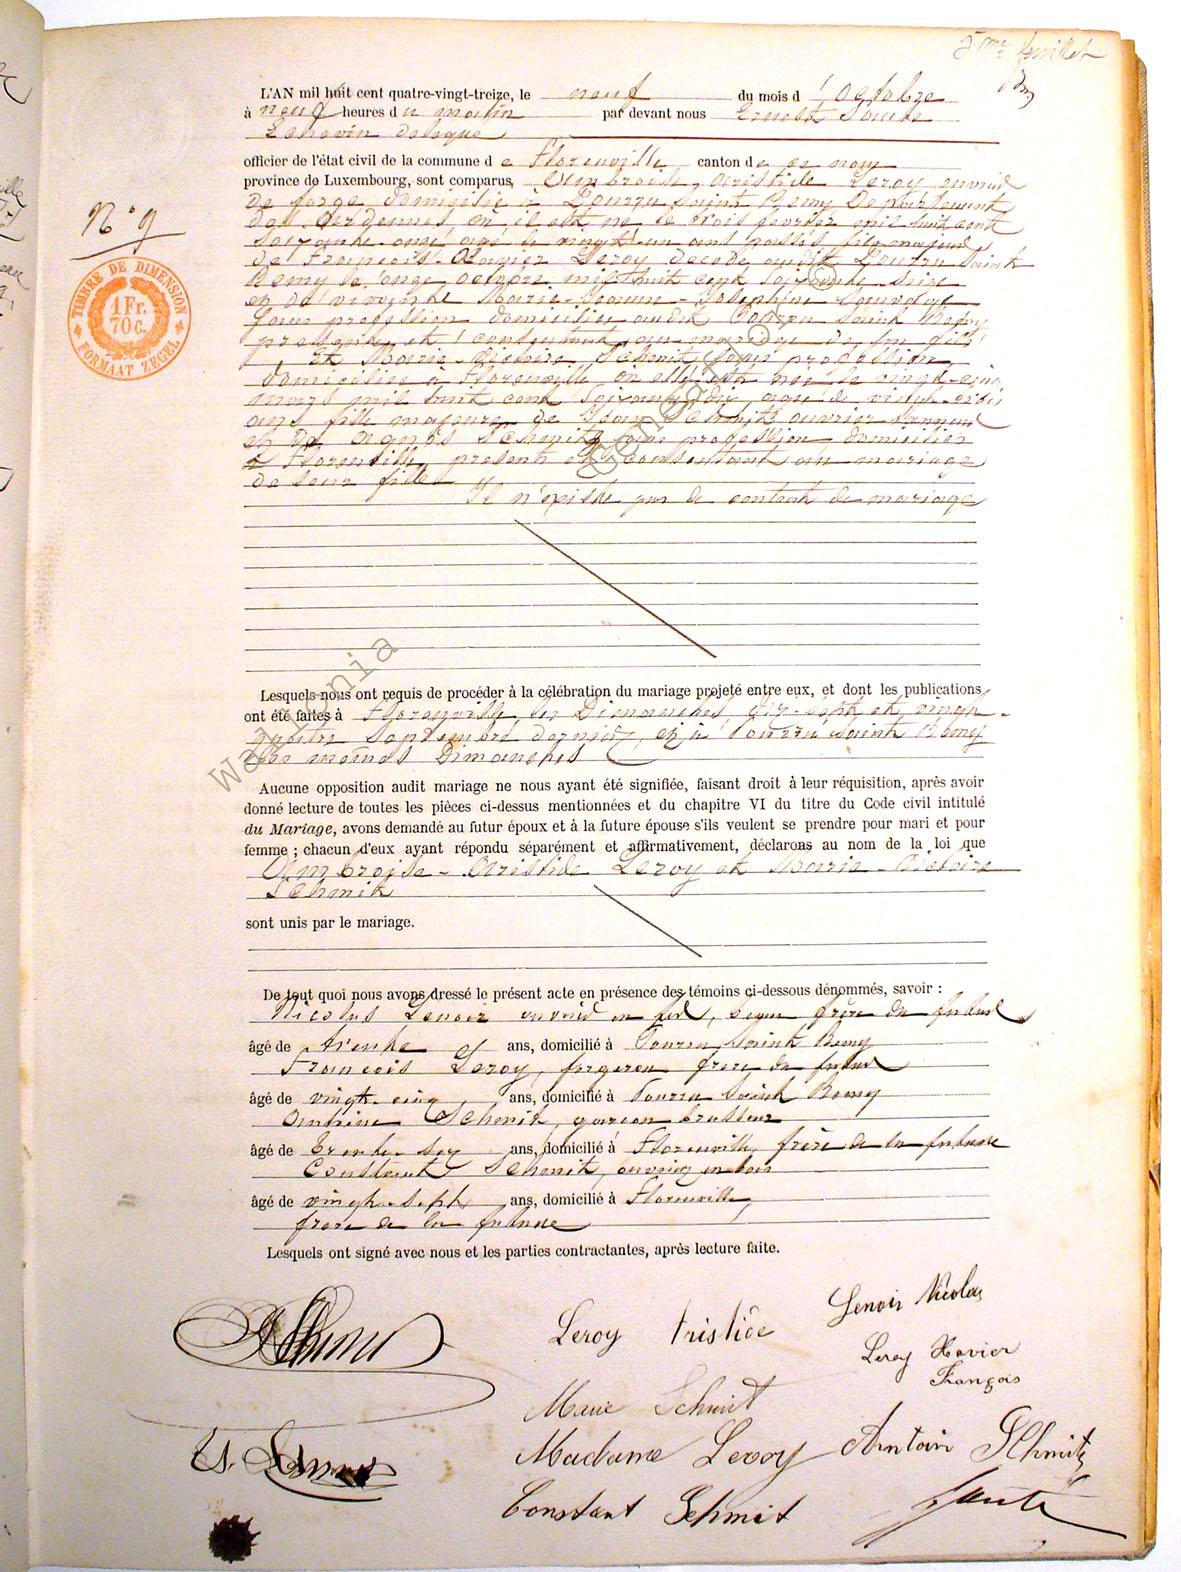 5me feuillet
L'AN mil huit cent quatre-vingt-treize, le neuf du mois d'Octobre
à neuf heures du matin par devant nous Ernest
Echevin délégué
officier de l'état civil de la commune de Florenville, canton de ce nom
province de Luxembourg, sont comparus, Ambroise-Aristide Leroy ouvrier
de forge domicilié à Pourru Saint Remy Département
des Ardennes où il est né le trois février mil huit cent
soixante-onze âgé de vingt-un ans passés, fils majeur
de François-Xavier Leroy décédé audit Pourru Saint
Remy le onze octobre mil huit cent soixante-seize
et de vivante Marie-Jeanne-Joséphine Sauvage
sans profession domiciliée audit Pourru Saint Remy
présente et consentant au mariage de son fils
Et Marie-Victoire Schmit sans profession
domiciliée à Florenville où elle est née le vingt-cinq
mars mil huit cent soixante-dix, âgée de vingt-trois
ans, fille majeure de Jean Schmit ouvrier
et de Agnès Schmitz sans profession domiciliés
à Florenville, présents et consentant au mariage
de leur fille
Il n'existe pas de contrat de mariage
N° 9
TIMBRE DE DIMENSION
1 Fr. 70 C.
FORMAAT ZEGEL
Lesquels nous ont requis de procéder à la célébration du mariage projeté entre eux, et dont les publications
ont été faites à Florenville, les Dimanches dix-sept et vingt-
quatre Septembre dernier, et à Pourru Saint Remy
les mêmes Dimanches
Aucune opposition audit mariage ne nous ayant été signifiée, faisant droit à leur réquisition, après avoir
donné lecture de toutes les pièces ci-dessus mentionnées et du chapitre VI du titre du Code civil intitulé
du Mariage, avons demandé au futur époux et à la future épouse s'ils veulent se prendre pour mari et pour
femme ; chacun d'eux ayant répondu séparément et affirmativement, déclarons au nom de la loi que
Ambroise-Aristide Leroy et Marie-Victoire
Schmit
sont unis par le mariage.
De tout quoi nous avons dressé le présent acte en présence des témoins ci-dessous dénommés, savoir :
Nicolas Lenoir ouvrier en fer, beau frère du futur
âgé de trente ans, domicilié à Pourru Saint Remy
François Leroy, forgeron frère du futur
âgé de vingt-cinq ans, domicilié à Pourru Saint Remy
Antoine Schmit, garçon brasseur
âgé de trente-six ans, domicilié à Florenville, frère de la future
Constant Schmit, ouvrier en bois
âgé de vingt-sept ans, domicilié à Florenville,
frère de la future
Lesquels ont signé avec nous et les parties contractantes, après lecture faite.
Leroy Aristide
Lenoir Nicolas
Leroy Xavier
François
Marie Schmit
Madame Leroy
Antoin Schmitz
Constant Schmit
wallonia
Geneanet
©